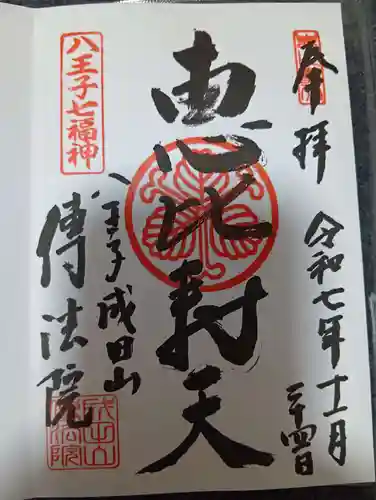 奉拝
令和七年十一月
二十四日
恵比寿天
八王子七福神
八王子成田山
傳法院